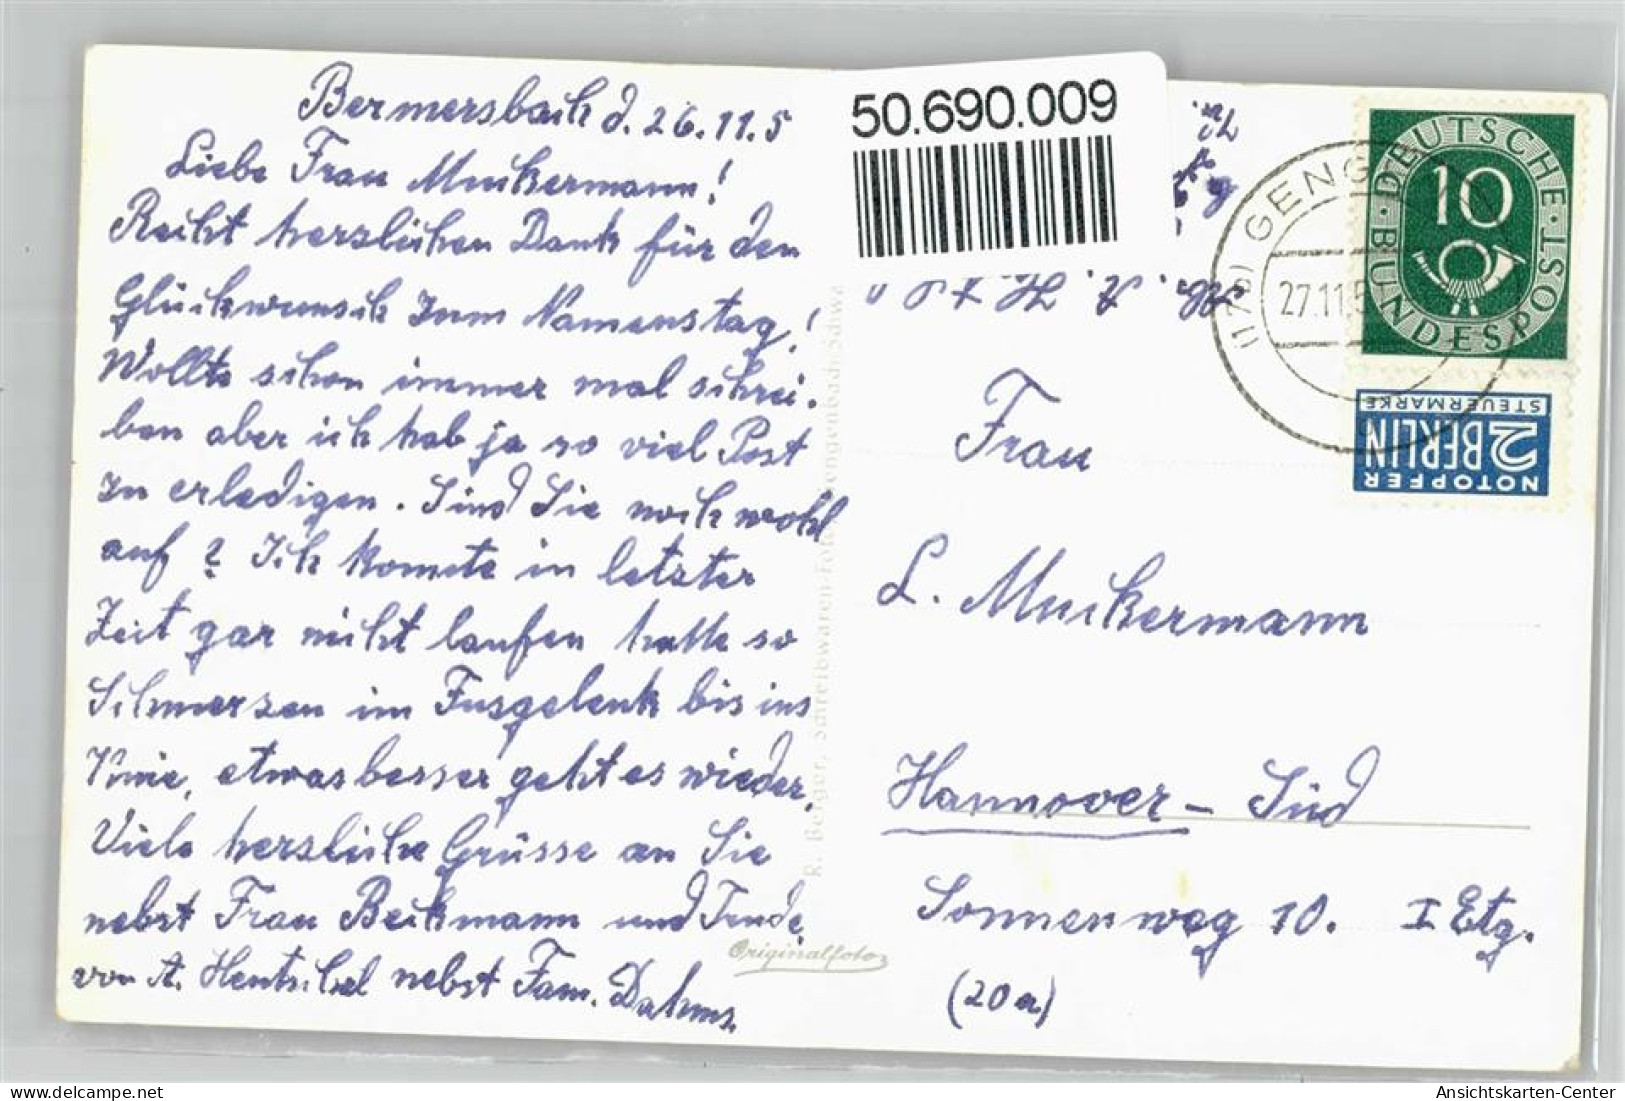 Bermersbach d. 26.11.5
Liebe Frau Muckermann!
Recht herzlichen Dank für den
Glückwunsch zum Namenstag!
Wollte schon immer mal schrei-
ben aber ich hab ja so viel Post
zu erledigen. Sind Sie noch wohl
auf? Ich konnte in letzter
Zeit gar nicht laufen hatte so
Schmerzen im Fusgelenk bis ins
Knie, etwas besser geht es wieder.
Viele herzliche Grüsse an Sie
nebst Frau Beckmann und Trude
von A. Hentschel nebst Fam. Dahms.
Originalfoto
R. Berger, Schreibwaren-Foto, Gengenbach/Schwa
50.690.009
(17b) GENG
27.11.5
DEUTSCHE BUNDESPOST
10
NOTOPFER
2 BERLIN
STEUERMARKE
Frau
L. Muckermann
Hannover - Süd
Sonnenweg 10. I Etg.
(20a)
Ansichtskarten-Center